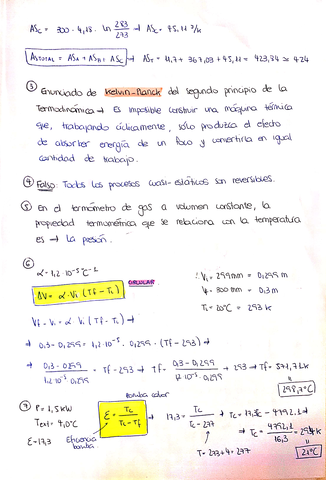 ΔSc = 300 · 4,18 · ln 283/273 → ΔSc = 45,11 J/k
ΔSTOTAL = ΔSA + ΔSB + ΔSC → ΔST = 11,7 + 367,03 + 45,11 = 423,84 ≃ 424
③ Enunciado de Kelvin-Planck del segundo principio de la
Termodinámica → Es imposible construir una máquina térmica
que, trabajando cíclicamente, sólo produzca el efecto
de absorber energía de un foco y convertirla en igual
cantidad de trabajo.
④ Falso: Todos los procesos cuasi-estáticos son reversibles.
⑤ En el termómetro de gas a volumen constante, la
propiedad termométrica que se relaciona con la temperatura
es → la presión.
⑥
α = 1,2·10⁻⁵ ºC⁻¹
ΔV = α · Vi (Tf - Ti)
Vi = 299mm = 0,299 m
Vf = 300 mm = 0,3 m
Ti = 20ºC = 293 k
Vf - Vi = α Vi (Tf - Ti) →
→ 0,3 - 0,299 = 1,2·10⁻⁵ · 0,299 · (Tf - 293) →
→ 0,3 - 0,299 / 1,2·10⁻⁵ · 0,299 = Tf - 293 → Tf = 0,3 - 0,299 / 1,2·10⁻⁵ · 0,299 + 293 → Tf = 571,7 k
298,7ºC
Bomba calor
⑦ P = 1,5 kW
Text = 4,0ºC
ε = 17,3
Eficiencia bomba
ε = Tc / Tc - Tf
→ 17,3 = Tc / Tc - 277 → Tc = 17,3Tc - 4792,1 →
→ Tc = 4792,1 / 16,3 = 294k
T = 273 + 4 = 277
21ºC